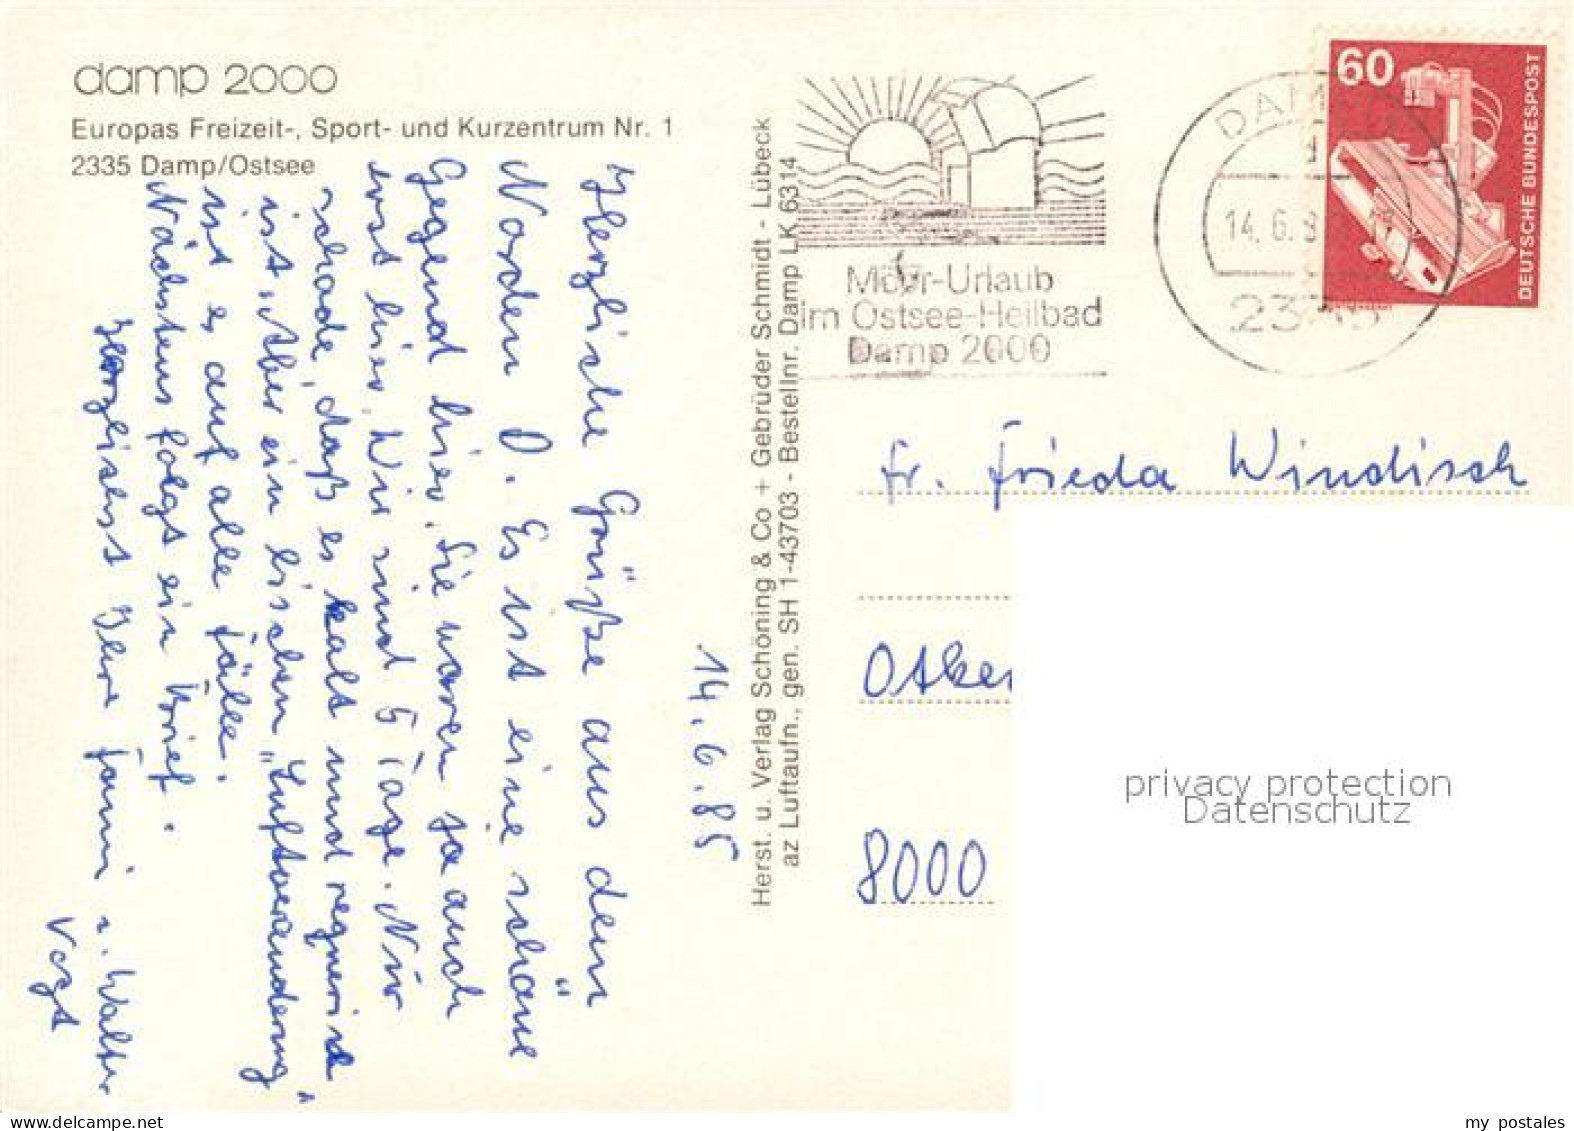 damp 2000
Europas Freizeit-, Sport- und Kurzentrum Nr. 1
2335 Damp/Ostsee
14.6.85
Herzliche Grüße aus dem
Norden D. Es ist eine schöne
Gegend hier. Sie waren ja auch
erst hier. Wir sind 5 Tage. Nur
schade, daß es kalt und regnerisch
ist. Aber ein bischen "Luftveränderung"
ist es auf alle Fälle.
Nächstens folgt ein Brief.
Herzlichst Ihre Fanni u. Walter
Vogt
Herst. u. Verlag Schöning & Co + Gebrüder Schmidt - Lübeck
az Luftaufn., gen. SH 1-43703 - Bestellnr. Damp LK 6314
Meer-Urlaub
im Ostsee-Heilbad
Damp 2000
DAMP
14. 6. 8
60
DEUTSCHE BUNDESPOST
Fr. Frieda Windisch
8000
privacy protection
Datenschutz
my postales